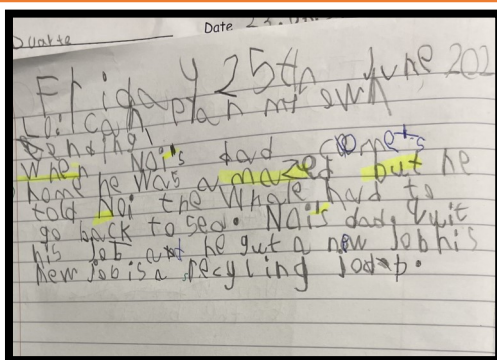 Duarte
Date 23.
Friday 25th June 202
LO: I can plan my own
ending.
When Noi's dad comets
home he was amazed but he
told Noi the whale had to
go back to sea. Nois dad Quit
his job and he gut a new Job his
new Job is a recycling job.